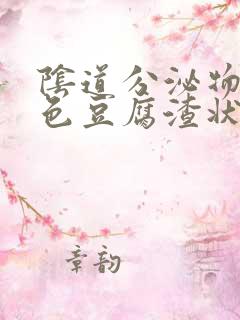 陰道分泌物
色豆腐渣狀
章韵